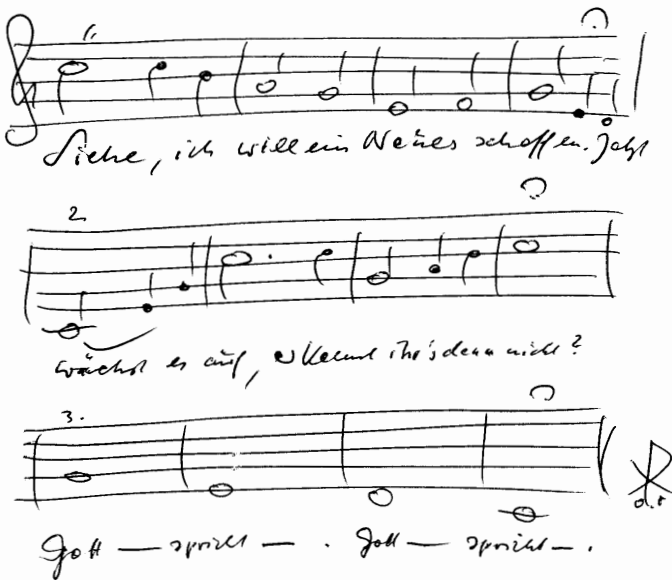 1.
Siehe, ich will ein Neues schaffen. Jetzt
2.
wächst es auf, erkennt ihr's denn nicht?
3.
Gott — spricht — . Gott — spricht — .